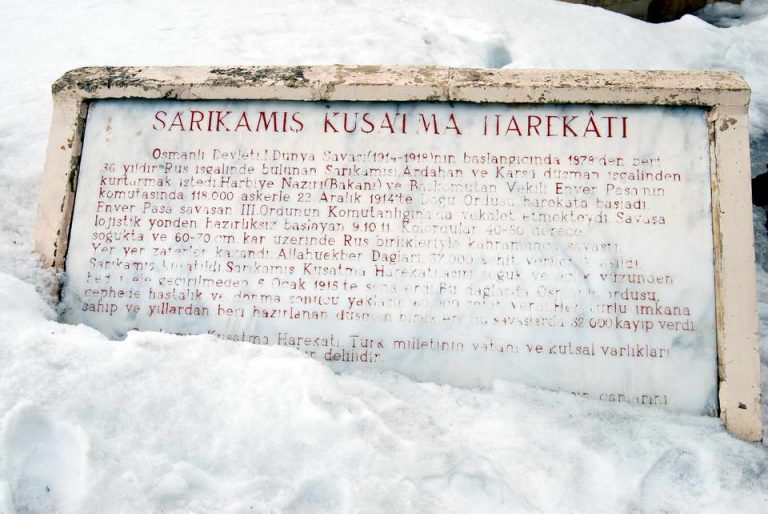 SARIKAMIŞ KUŞATMA HAREKÂTI
Osmanlı Devleti I.Dünya Savaşı(1914-1918)'nın başlangıcında 1878'den beri
36 yıldır Rus işgalinde bulunan Sarıkamış,Ardahan ve Kars'ı düşman işgalinden
kurtarmak istedi.Harbiye Nazırı(Bakanı) ve Başkomutan Vekili Enver Paşa'nın
komutasında 118.000 askerle 22 Aralık 1914'te Doğu Ordusu harekata başladı.
Enver Paşa savaşan III.Ordunun Komutanlığına da vekalet etmekteydi. Savaşa
lojistik yönden hazırlıksız başlayan 9.10.11. Kolordular 40-50 derece
soğukta ve 60-70 cm. kar üzerinde Rus birlikleriyle kahramanca savaştı.
Yer yer zaferler kazandı. Allahuekber Dağları 37.000 şehit
Sarıkamış kuşatıldı.Sarıkamış Kuşatma Harekatı,aşırı soğuk yüzünden
geçirilmeden 5 Ocak 1915'te sona erdi. Bu dağlarda Osmanlı ordusu,
cephede hastalık ve donma sonucu 60.000 türlü imkana
sahip ve yıllardan beri hazırlanan düşman bu savaşlarda 32.000 kayıp verdi.
Kuşatma Harekatı, Türk milletinin vatanı ve kutsal varlıkları
delilidir.
canlarını